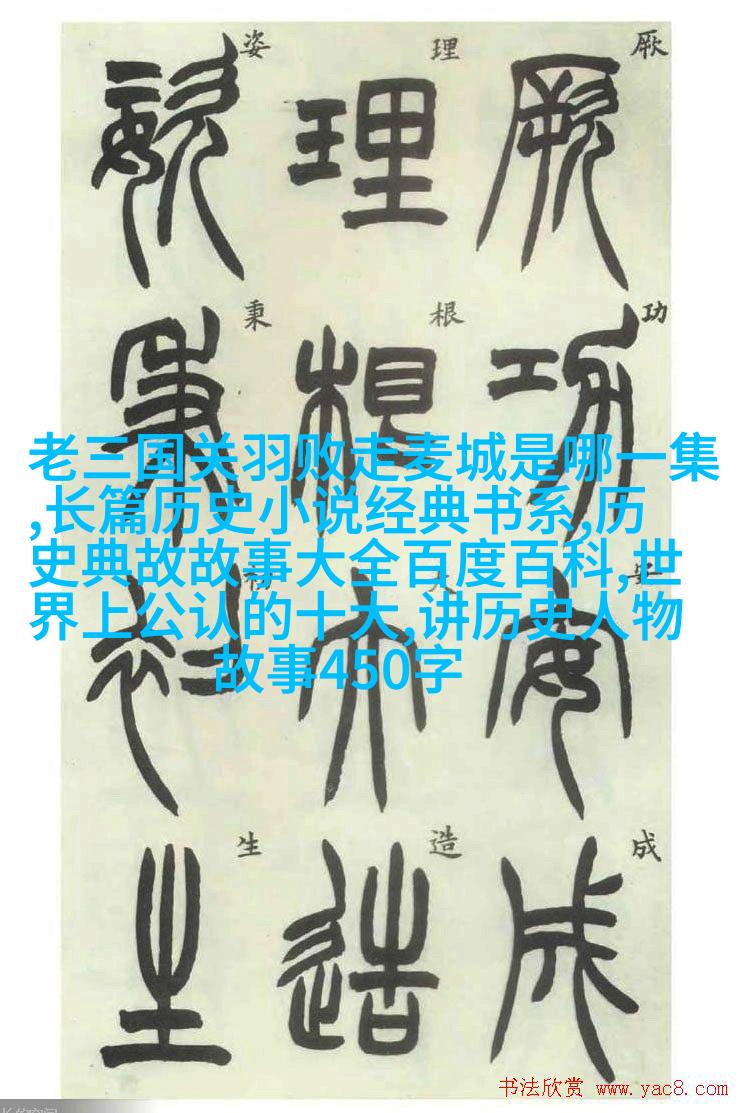 厥功安成
厥功安成
理根大造
理根大造
姿秉初生
姿秉初生
老三国关羽败走麦城是哪一集
,长篇历史小说经典书系,历
史典故故事大全百度百科,世
界上公认的十大,讲历史人物
故事450字
书法欣赏 www.yac8.com